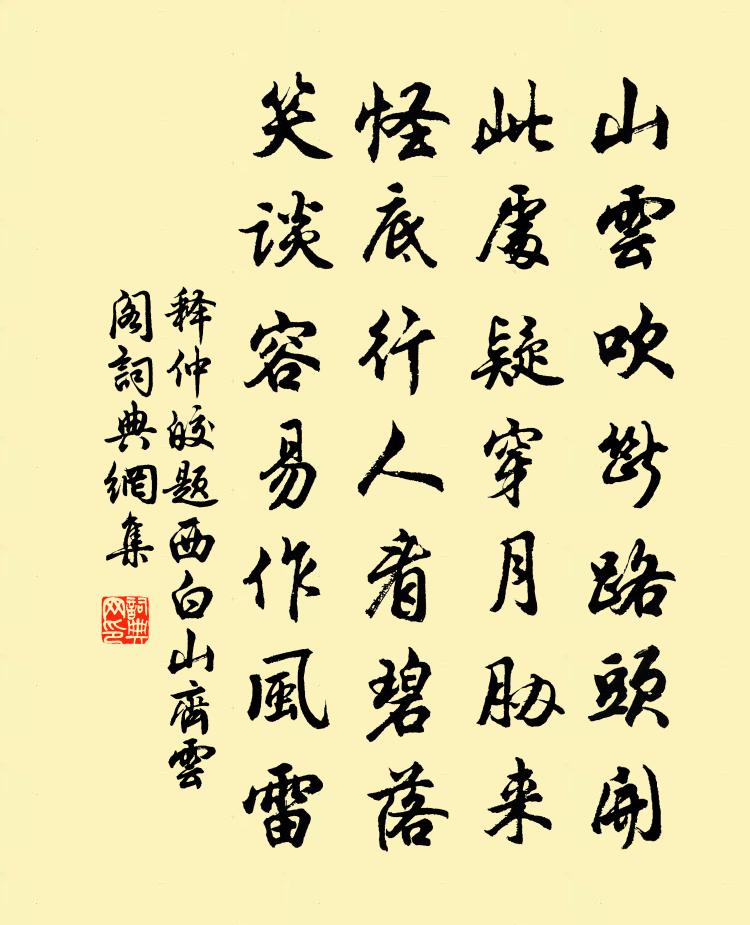 山雲吹斷路頭開
此處疑穿月胁来
怪底行人看碧落
笑談容易作風雷
释仲皎题西白山齊雲
阁詞典網集
詞典网印